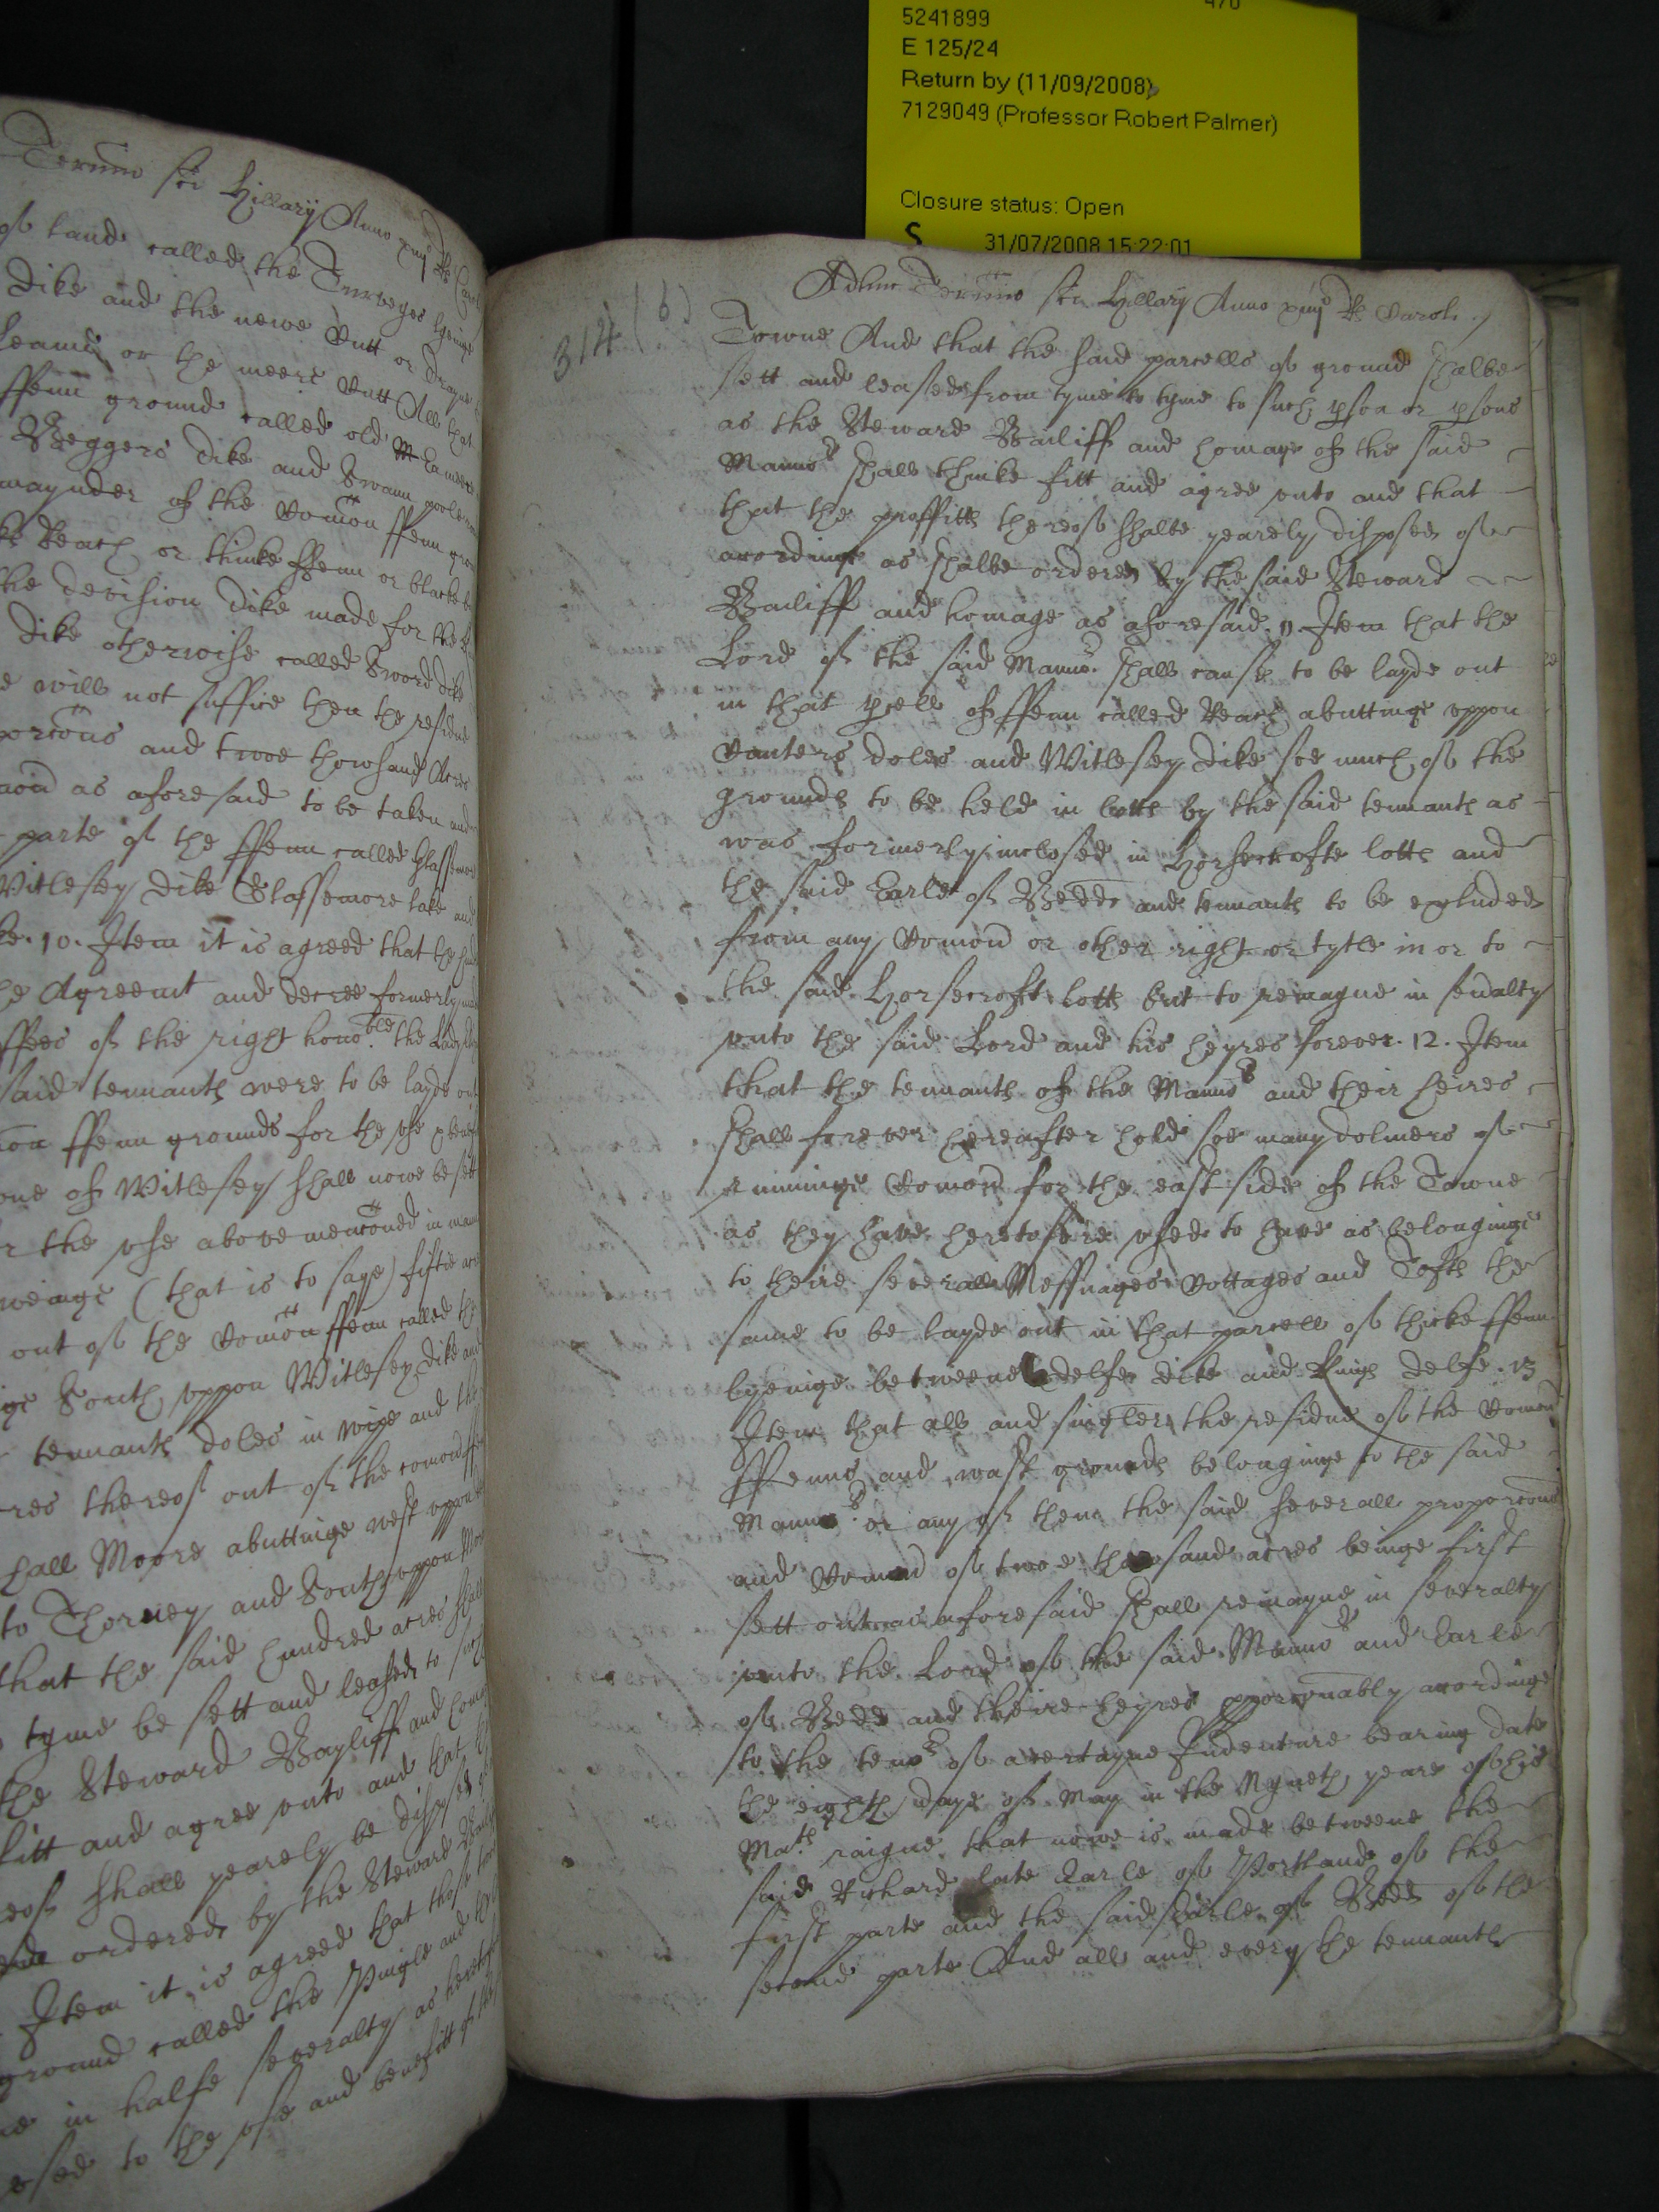 470
5241899
E 125/24
Return by (11/09/2008)
7129049 (Professor Robert Palmer)
Closure status: Open
S 31/07/2008 15:22:01
Termino sci Hillarij Anno xiiijo Rs Caroli
of land called the Turveyes lyeinge
Dike and the newe Cutt or Drayne
Leame or the meere Cutt All that
ffenn ground called old Ea
Beggers Dike and Swann poole
maynder of the Comon ffenn
Reach or thicke ffenn or blacke
the devision Dike made for the
Dike otherwise called Sword Dike
will not suffice then the residue
porcons and twoe thowsand Acres
as aforesaid to be taken and
parte of the ffenn called Glassemore
Witlesey Dike Glassemore lake and
10. Item it is agreed that the said
Agreemt and decree formerly
ffees of the right honoble the Lady
said tennants were to be layde out
ffenn grounds for the use
of Witlesey shall nowe be sett
the use above menconed in
(that is to saye) fiftie
out of the Comon ffenn called the
South uppon Witlesey Dike and
tennants doles in and the
thereof out of the comon
hall Moore abuttinge west uppon
to Thorney and South uppon
that the said hundred acres shall
tyme be sett and leased to such
the Steward Bayliff and
fitt and agree unto and that
shall yearely be disposed
ordered by the Steward
Item it is agreed that those
ground called the Pingle and
in halfe severalty as
to the use and benefitt of the
314 (6)
Adhuc Termino sci Hillarij Anno xiiijo Rs Caroli
Towne And that the said parcells of ground shalbe
sett and leased from tyme to tyme to such pson or psons
as the Steward Bailiff and homage of the said
Mannor shall thinke fitt and agree unto and that
that the proffitts thereof shalbe yearely disposed of
acordinge as shalbe ordered by the said Steward
Bailiff and homage as aforesaid. 11. Item that the
Lord of the said Mannor shall cause to be layde out
in that pcell of ffenn called Reach abuttinge uppon
Canters doles and Witlesey Dike soe much of the
grounds to be held in lotts by the said tennants as
was formerly inclosed in Horsecrofte lotts and
the said Earle of Bedd and tennants to be excluded
from any Comon or other right or tytle in or to
the said Horsecroft Lotts but to remayne in sevalty
unto the said Lord and his heyres forever. 12. Item
that the tennants of the Mannor and their heires
shall forever hereafter hold soe many dolmers of
runninge Comon for the east side of the Towne
as they have heretofore used to have as belonginge
to theire severall Messuages Cottages and Tofts the
same to be layde out in that parcell of thicke ffenn
lyeinge betweene delfe dike and Kings delfe. 13
Item that all and singler the residue of the Comon
ffenns and wast grounds belonginge to the said
Mannors or any of them the said severall proporcons
and Comon of twoe thousand acres beinge first
sett out as aforesaid shall remayne in severalty
unto the Lord of the said Mannors and Earle
of Bedd and theire heyres pporconably acordinge
to the tenor of a certayne Indenture bearing date
the eighth daye of May in the Nyneth yeare of his
Mats raigne that nowe is made betweene the
said Richard late Earle of Portland of the
first parte and the said Earle of Bedd of the
second parte And all and every the tennants